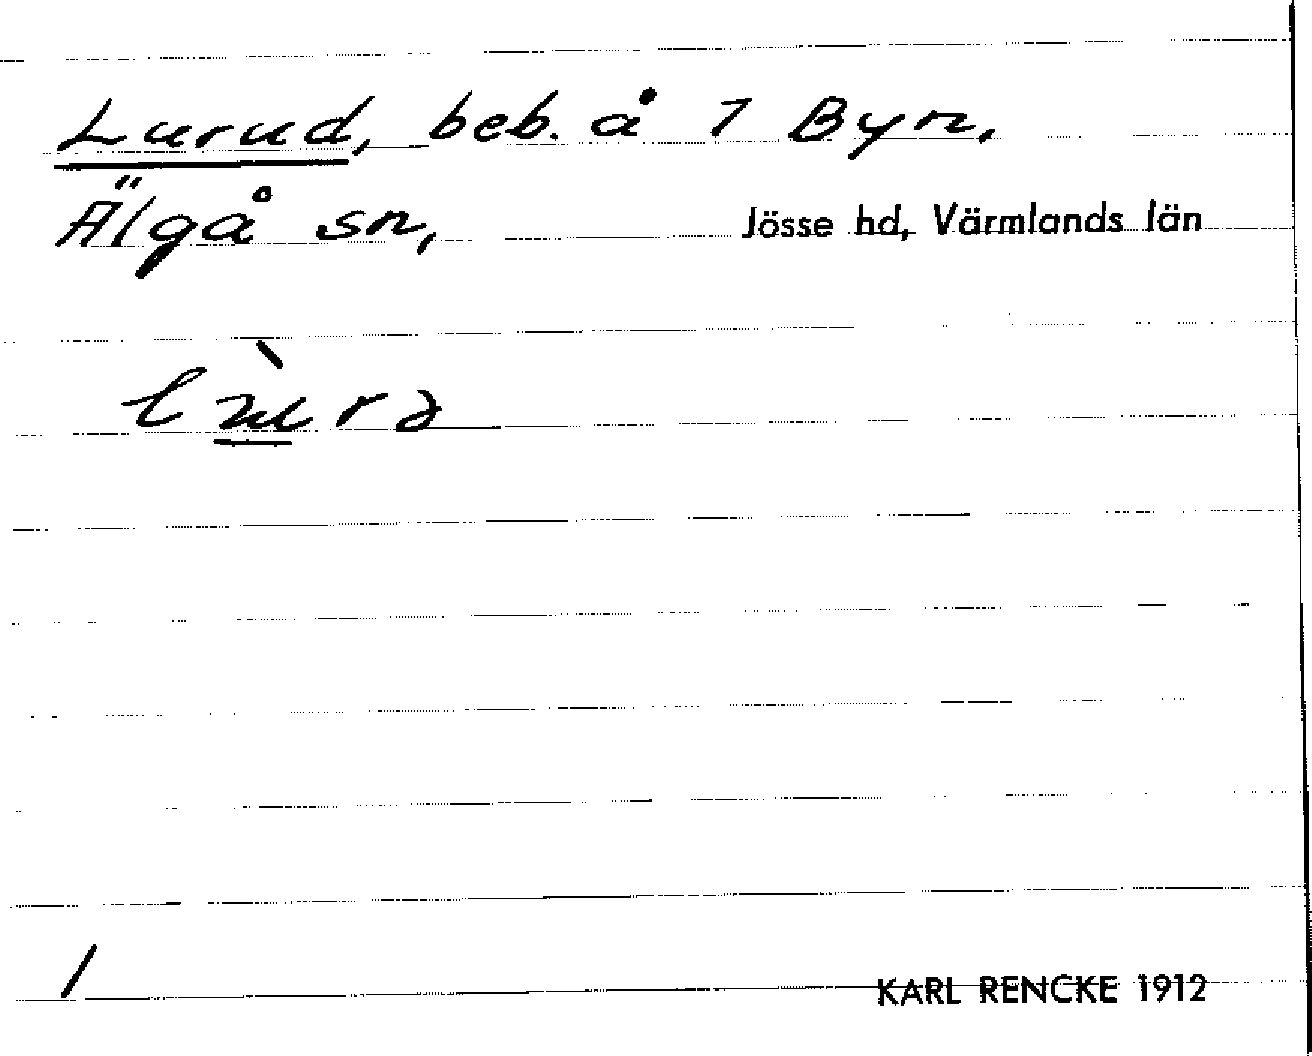 Lurud, beb. å 7 Byn,
Älgå sn, Jösse hd, Värmlands län
lùrə
1
KARL RENCKE 1912